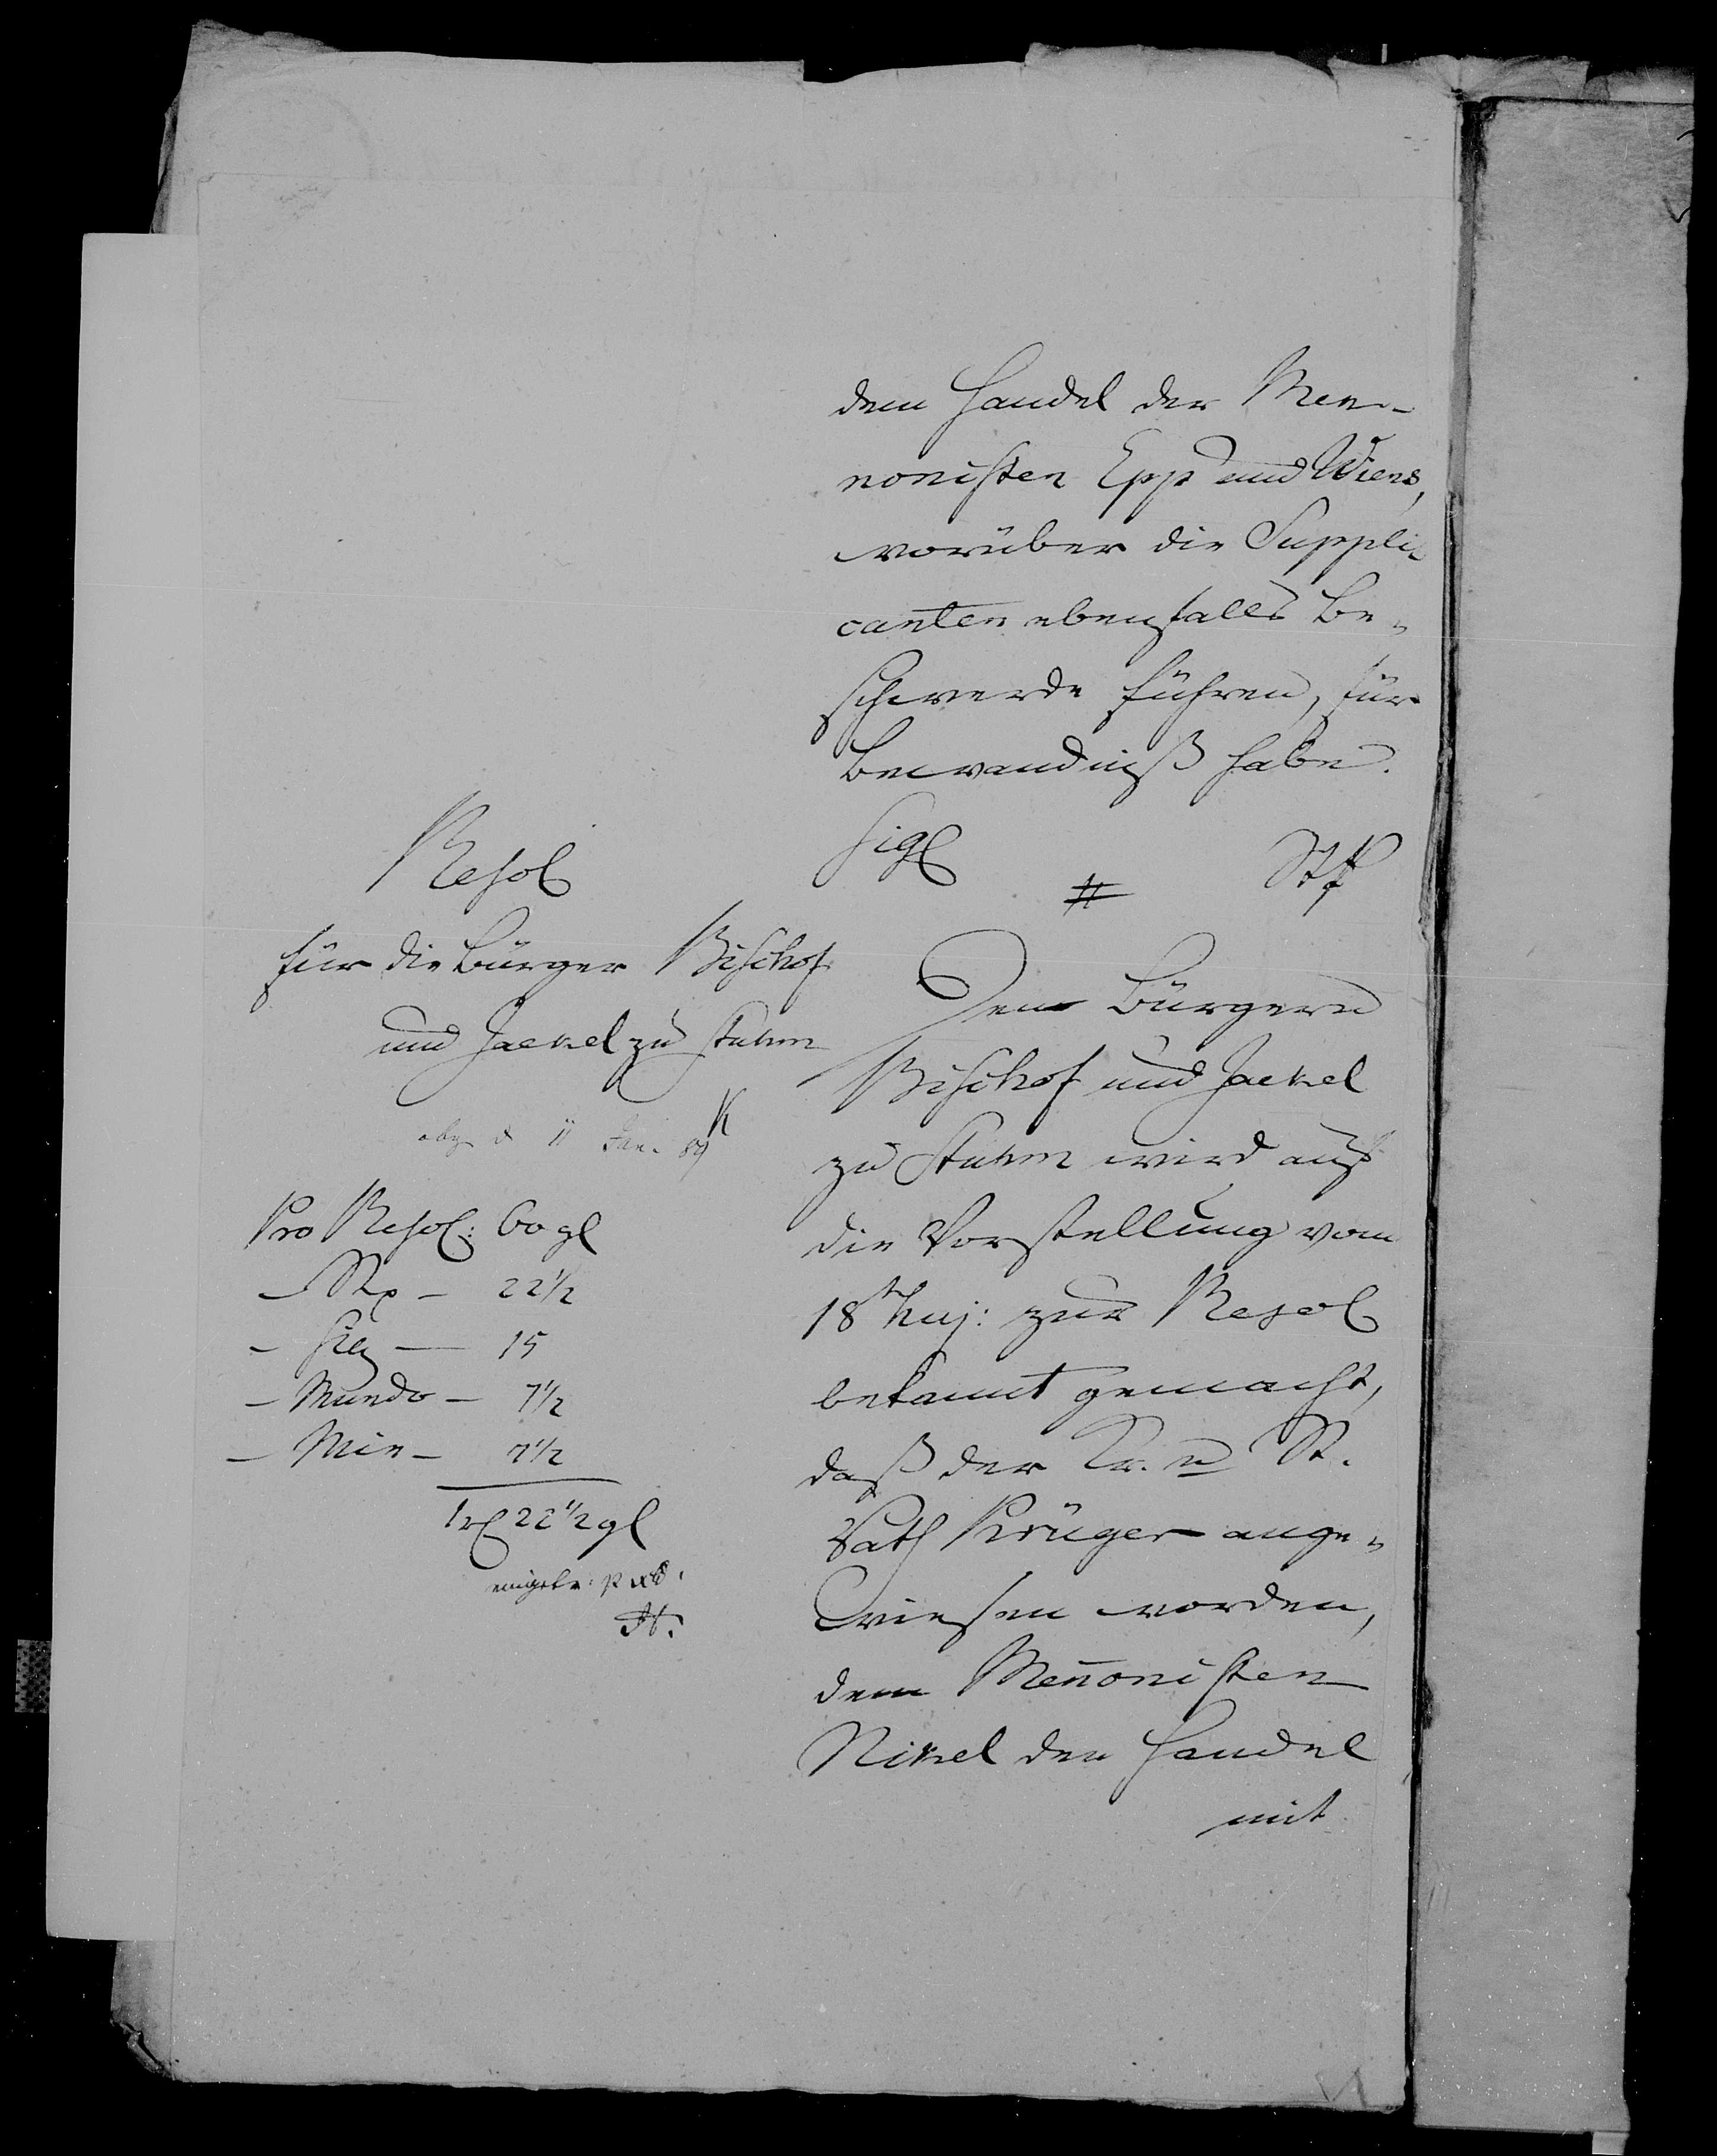 dem Handel der Men-
nonisten Epp und Wiens,
worüber die Suppli-
canten ebenfalls Be-
schwerde führen, für
Bewandniß habe.
Sigl
#
Resol
für die Bürger Bischof
und Jaekel zu Stuhm
abg d 11 Jan. 89
Pro Resol: 60 gl
— Rp — 22 1/2
— Sieg — 15
— Mundo — 7 1/2
— Min — 7 1/2
1 rl 22 1/2 gl
Den Bürgern
Bischof und Jaekel
zu Stuhm wird auf
die Vorstellung vom
18t huj: zur Resol
bekannt gemacht,
daß der Kr. u St.
Rath Krüger ange-
wiesen worden,
dem Mennonisten
Nikel den Handel
mit